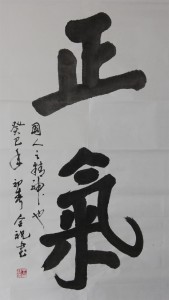 正氣
國人之精神也
癸巳年初春全祝書